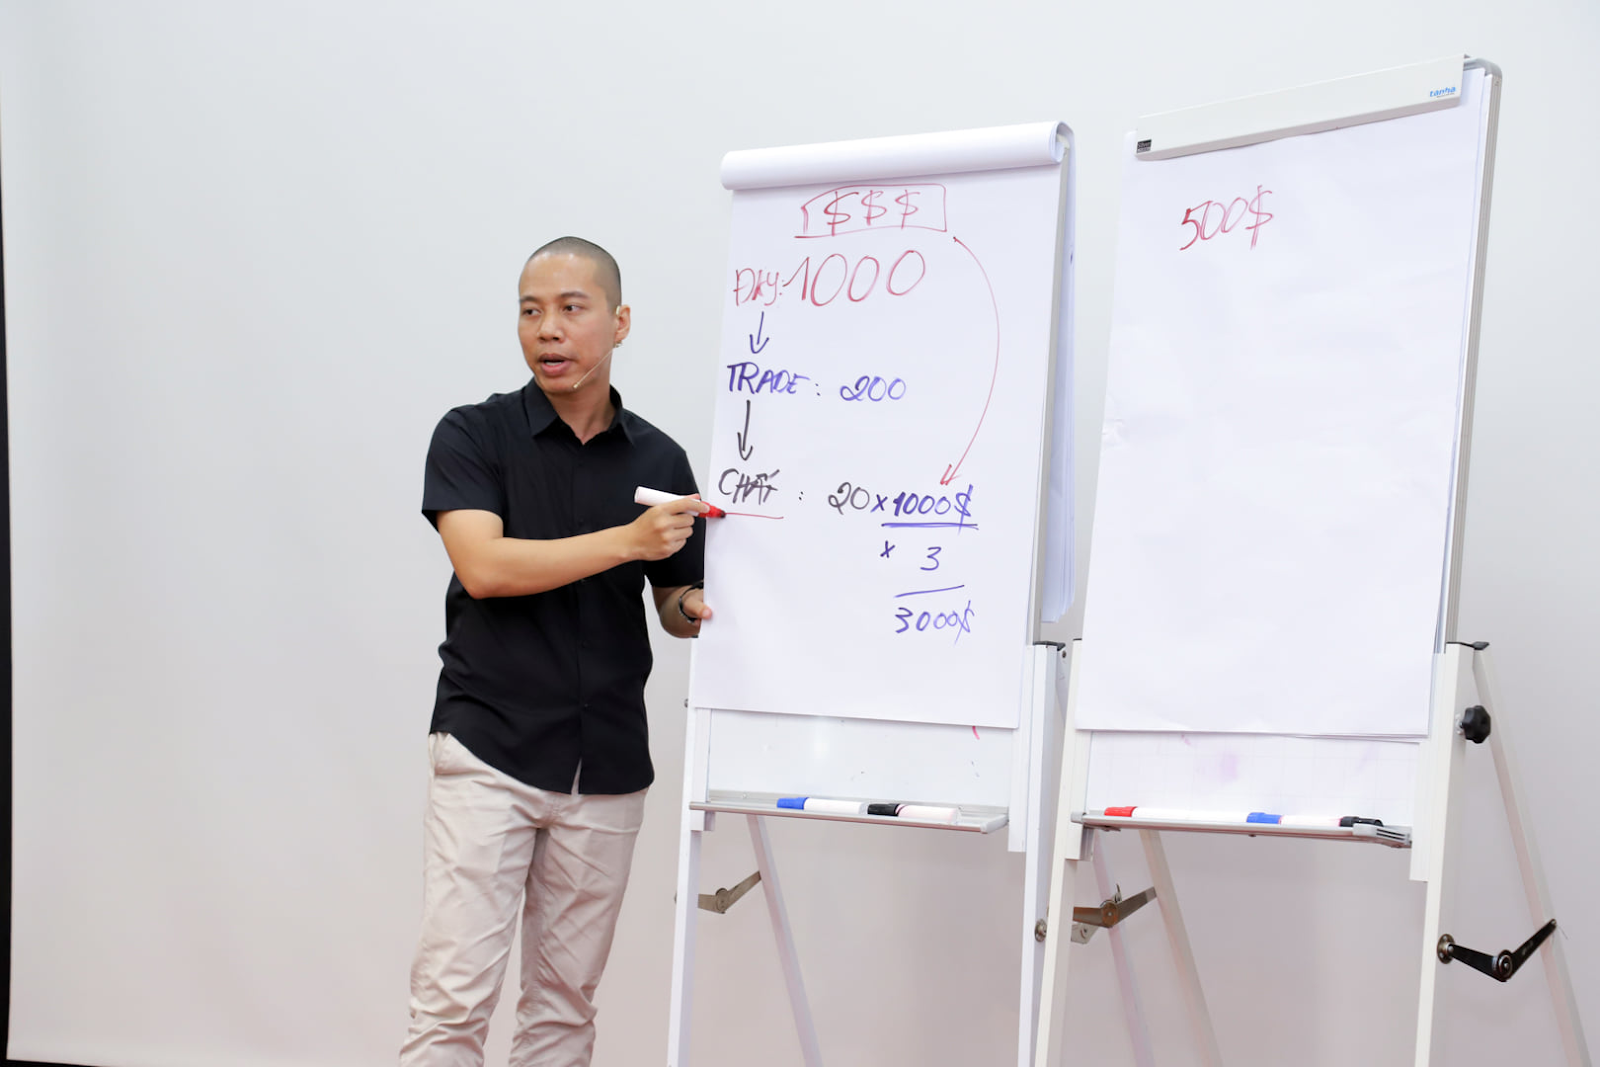 $$$
ĐẠY: 1000
TRADE: 200
CHẤT : 20 x 1000$
x 3
3000$
tanha
500$